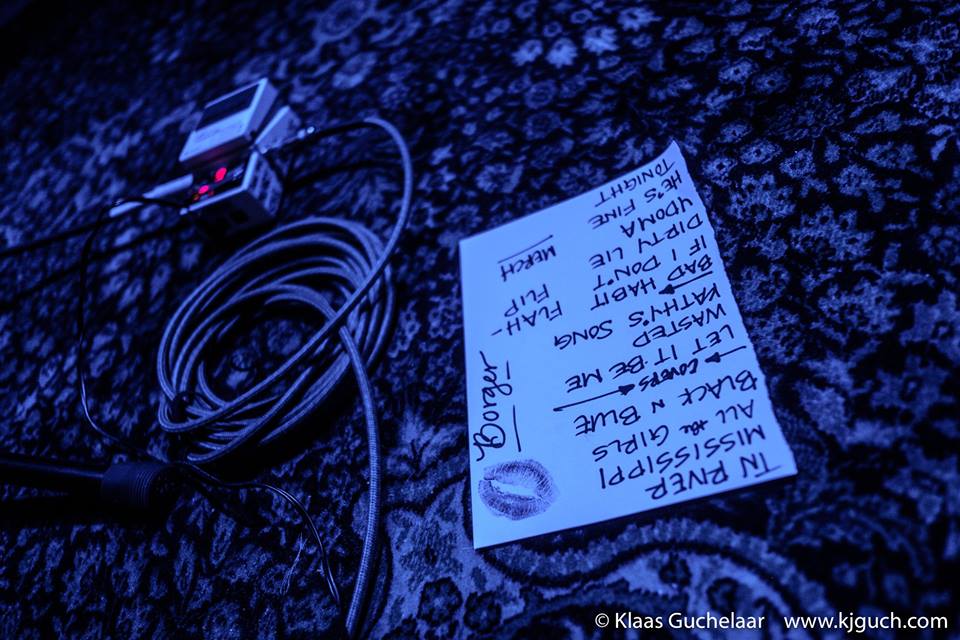 TN RIVER
MISSISSIPPI
ALL the GIRLS
BLACK N BLUE
COVERS
LET IT BE ME
WASTED
KATHY'S SONG
BAD HABIT
IF I DON'T
DIRTY LIE
YDOMA
HE'S FINE
TONIGHT
Borger
FLAH-
FLIP
MERCH
© Klaas Guchelaar www.kjguch.com